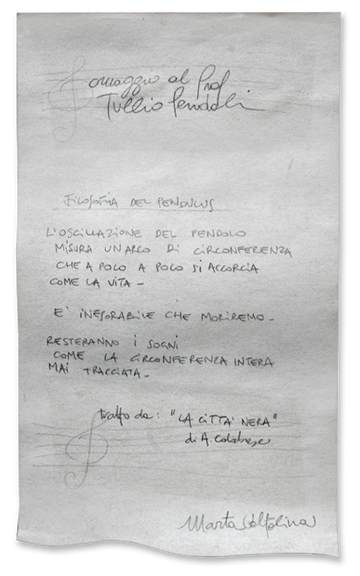 omaggio al Prof
Tullio Pendoli
FILOSOFIA DEL PENDULUS
L'OSCILLAZIONE DEL PENDOLO
MISURA UN ARCO DI CIRCONFERENZA
CHE A POCO A POCO SI ACCORCIA
COME LA VITA -
E' INESORABILE CHE MORIREMO -
RESTERANNO I SOGNI
COME LA CIRCONFERENZA INTERA
MAI TRACCIATA -
tratto da: "LA CITTA' NERA"
di A. Calabrese
Marta